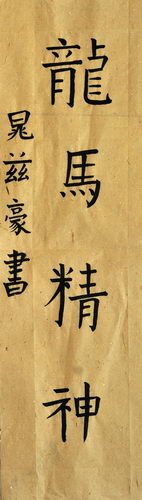 龍馬精神
晁兹豪書